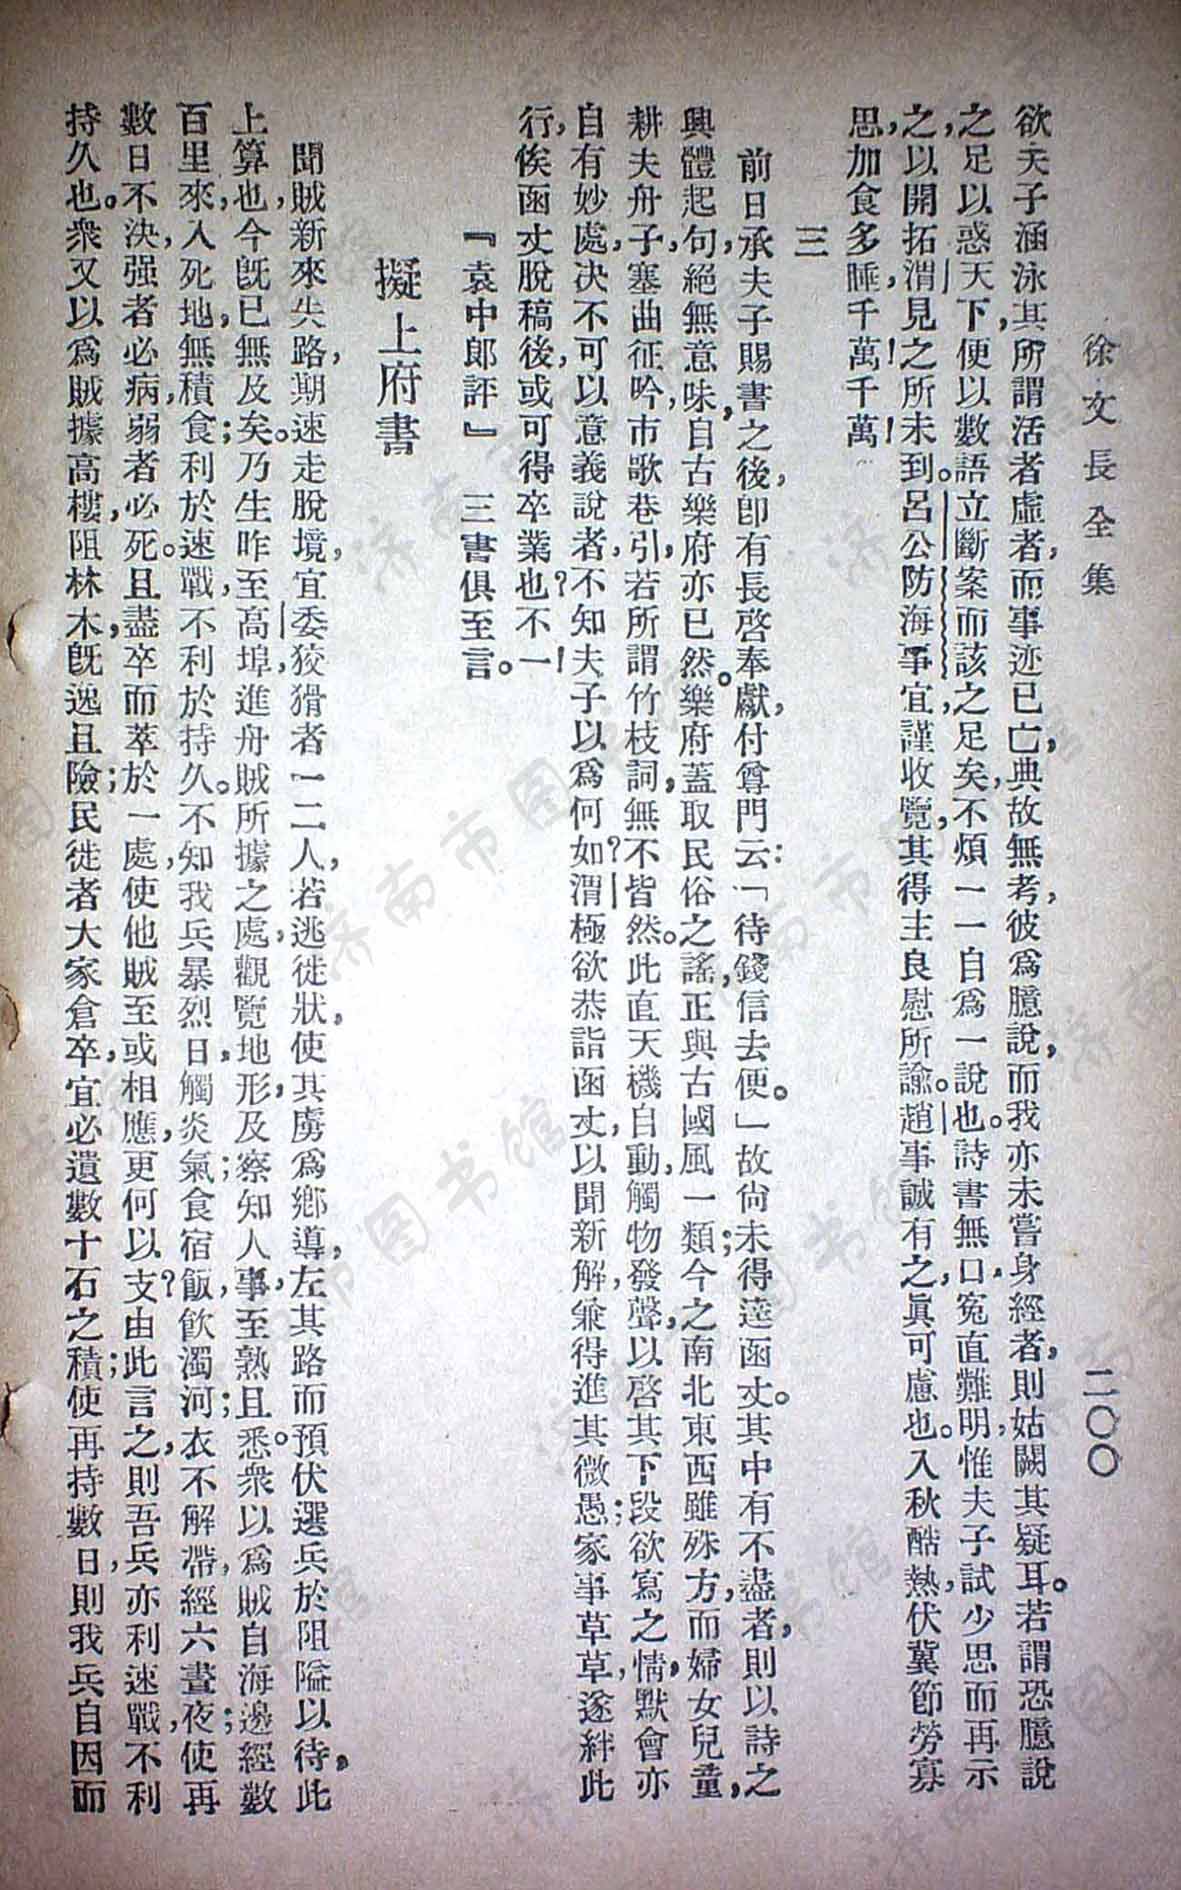 徐文長全集　二〇〇
欲夫子涵泳其所謂活者虛者，而事迹已亡，典故無考，彼爲臆說，而我亦未嘗身經者，則姑闕其疑耳。若謂恐臆說
之足以惑天下，便以數語立斷案而該之足矣，不煩一一自爲一說也。詩書無口，寃直難明，惟夫子試少思而再示
之，以開拓渭見之所未到。呂公防海事宜，謹收覽，其得主良慰所諭。趙事誠有之，眞可慮也。入秋酷熱，伏冀節勞寡
思，加食多睡，千萬！千萬！
三
前日承夫子賜書之後，卽有長啓奉獻，付尊門云：「待錢信去便。」故尙未得達函丈。其中有不盡者，則以詩之
興體起句，絕無意味，自古樂府亦已然。樂府蓋取民俗之謠，正與古國風一類；今之南北東西雖殊方，而婦女兒童，
耕夫舟子，塞曲征吟，市歌巷引，若所謂竹枝詞，無不皆然。此直天機自動，觸物發聲，以啓其下段欲寫之情，默會亦
自有妙處，决不可以意義說者，不知夫子以爲何如？渭極欲恭詣函丈，以聞新解，兼得進其微愚；家事草草，遂絆此
行，俟函丈脫稿後，或可得卒業也？不一！
『袁中郎評』　三書俱至言。
擬上府書
聞賊新來失路，期速走脫境，宜委狡猾者一二人，若逃徙狀，使其虜爲鄉導，左其路而預伏選兵於阻隘以待，此
上算也，今旣已無及矣；乃生昨至高埠，進舟賊所據之處，觀覽地形，及察知人事，至熟且悉。衆以爲賊自海邊經數
百里來，入死地，無積食，利於速戰，不利於持久。不知我兵暴烈日，觸炎氣；食宿飯，飲濁河；衣不解帶，經六晝夜；使再
數日不決，强者必病，弱者必死。且盡卒而萃於一處，使他賊至或相應，更何以支？由此言之，則吾兵亦利速戰，不利
持久也。衆又以爲賊據高樓，阻林木，旣逸且險；民徙者大家倉卒，宜必遺數十石之積；使再持數日，則我兵自因而